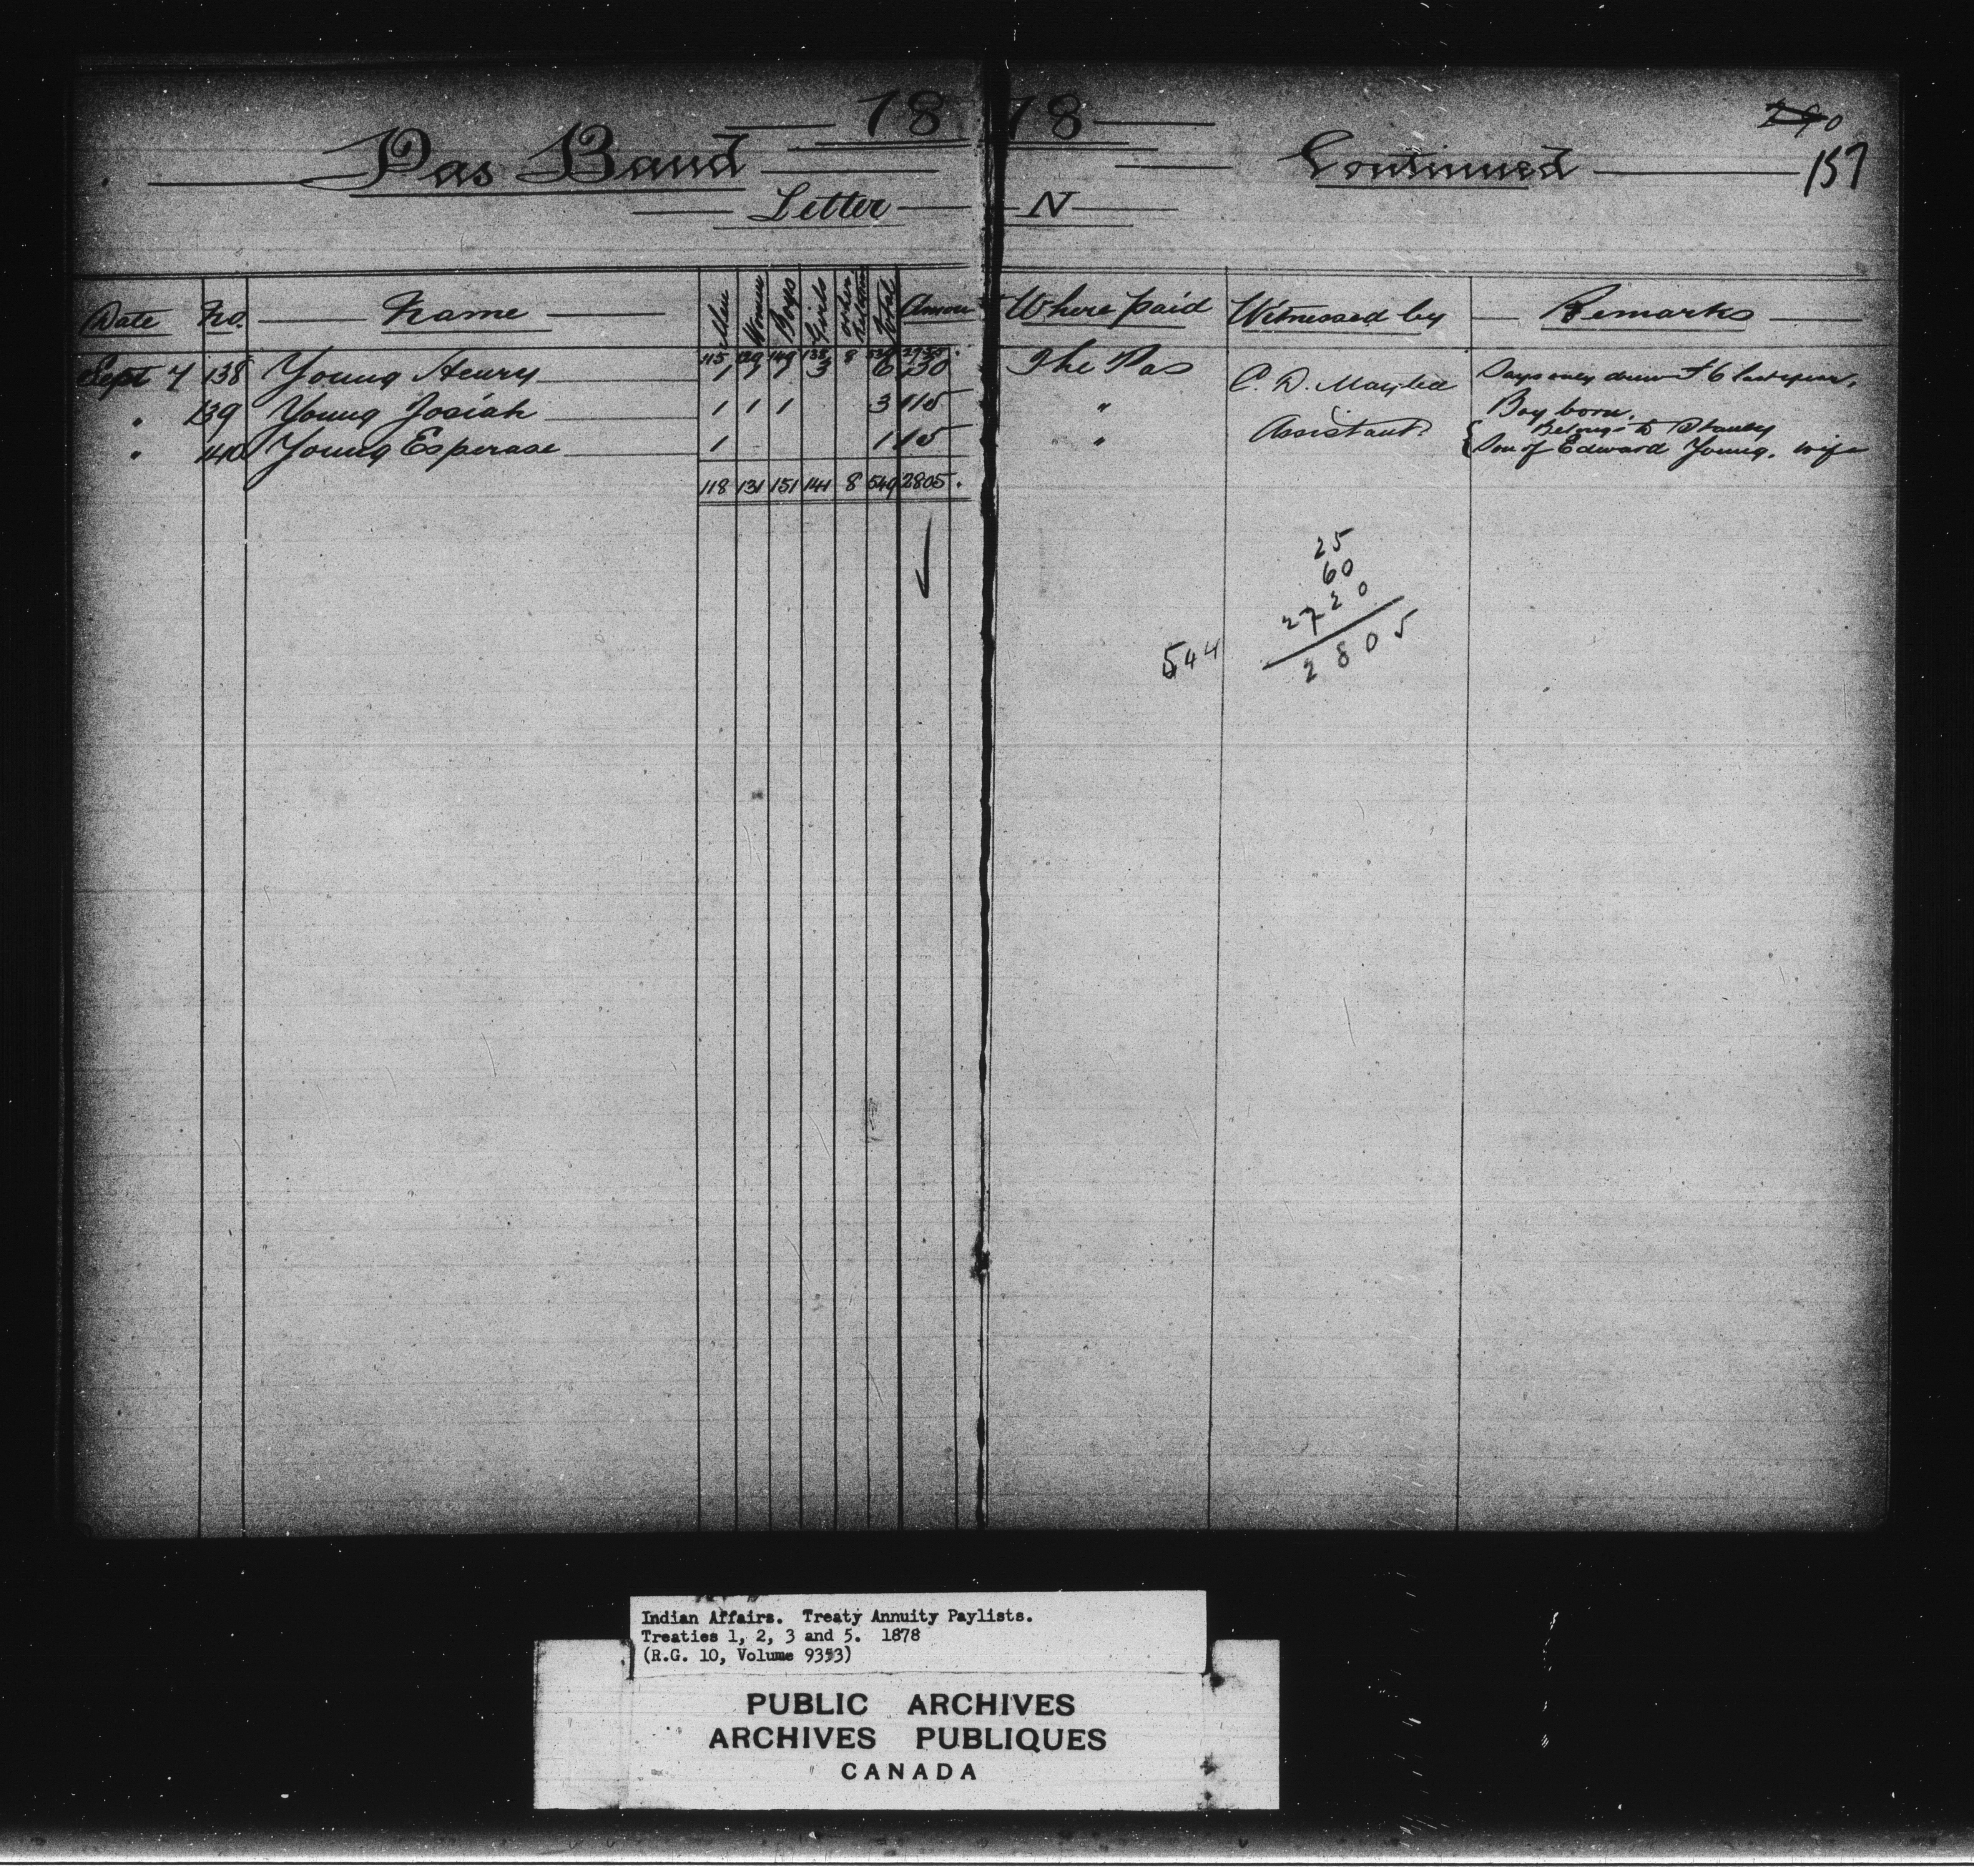 1878
290
Pas Band Continued 157
Letter N
Date No. Name Men Women Boys Girls Other Relatives Total Amount Where paid Witnessed by Remarks
115 129 149 138 8 539 2755.
Sept 7 138 Young Henry 1 1 1 3 6 30 The Pas C. D. Says only drew $6 last year.
" 139 Young Josiah 1 1 1 3 15 " Assistant Boy born.
" 140 Young Esperase 1 1 5 " Belongs to Stanley
Son of Edward Young. wife
118 131 151 141 8 549 2805.
25
60
2720
544 2805
Indian Affairs. Treaty Annuity Paylists.
Treaties 1, 2, 3 and 5. 1878
(R.G. 10, Volume 9353)
PUBLIC ARCHIVES
ARCHIVES PUBLIQUES
CANADA